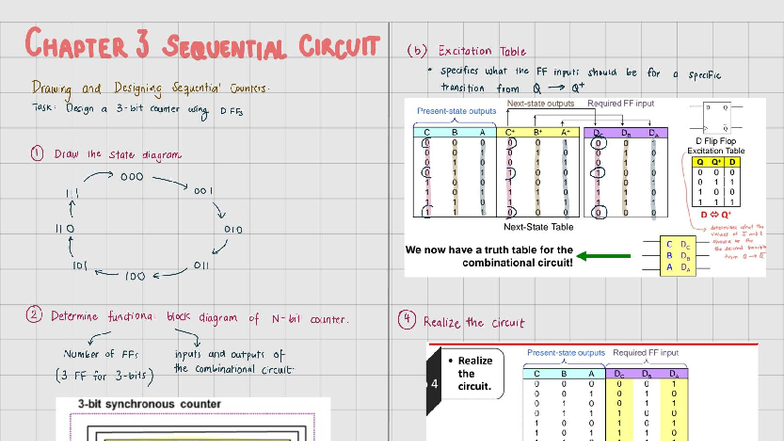 CHAPTER 3 SEQUENTIAL CIRCUIT
Drawing and Designing Sequential Counters.
Task: Design a 3-bit counter using DFFs
1 Draw the state diagram
000
001
010
011
100
101
110
111
2 Determine functional block diagram of N-bit counter.
Number of FFs
(3 FF for 3-bits)
inputs and outputs of
the combinational circuit.
3-bit synchronous counter
(b) Excitation Table
• specifies what the FF inputs should be for a specific
transition from Q → Q+
Present-state outputs
Next-state outputs
Required FF input
C B A C+ B+ A+ DC DB DA
Next-State Table
D Flip Flop
Excitation Table
Q Q+ D
0 0 0
0 1 1
1 0 0
1 1 1
D ⇔ Q+
We now have a truth table for the
combinational circuit!
C DC
B DB
A DA
4 Realize the circuit
4
• Realize
the
circuit.
Present-state outputs Required FF input
C B A DC DB DA
0 0 0 0 0 1
0 0 1 0 1 0
0 1 0 0 1 1
0 1 1 1 0 0
1 0 0 1 0 1